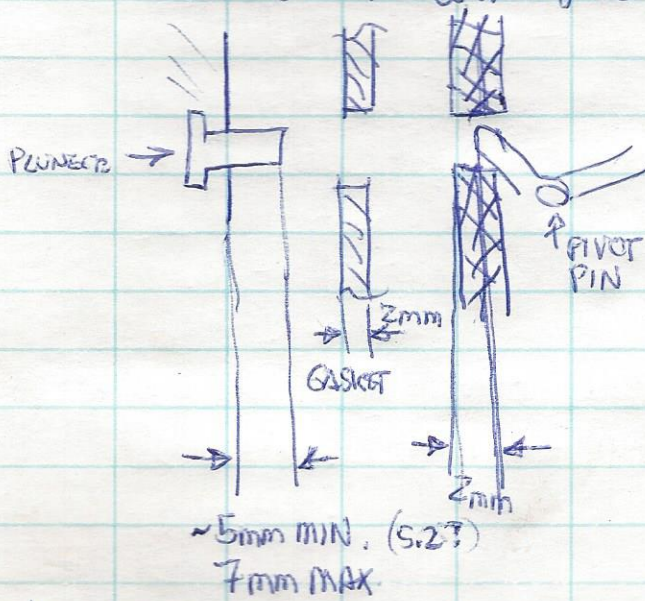 PLUNGER →
↑
PIVOT
PIN
2mm
GASKET
2mm
~5mm MIN. (5.2?)
7mm MAX.